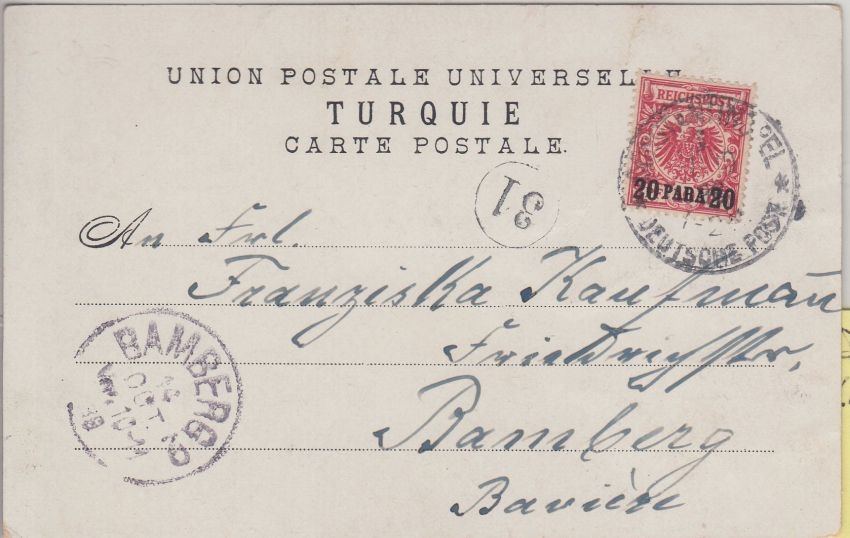 UNION POSTALE UNIVERSELLE
TURQUIE
CARTE POSTALE.
REICHSPOST
20 PARA 20
DEUTSCHE POST
31
An Frl.
Franziska Kaufmann
Friedrichstr.
Bamberg
Bavière
BAMBERG
OCT